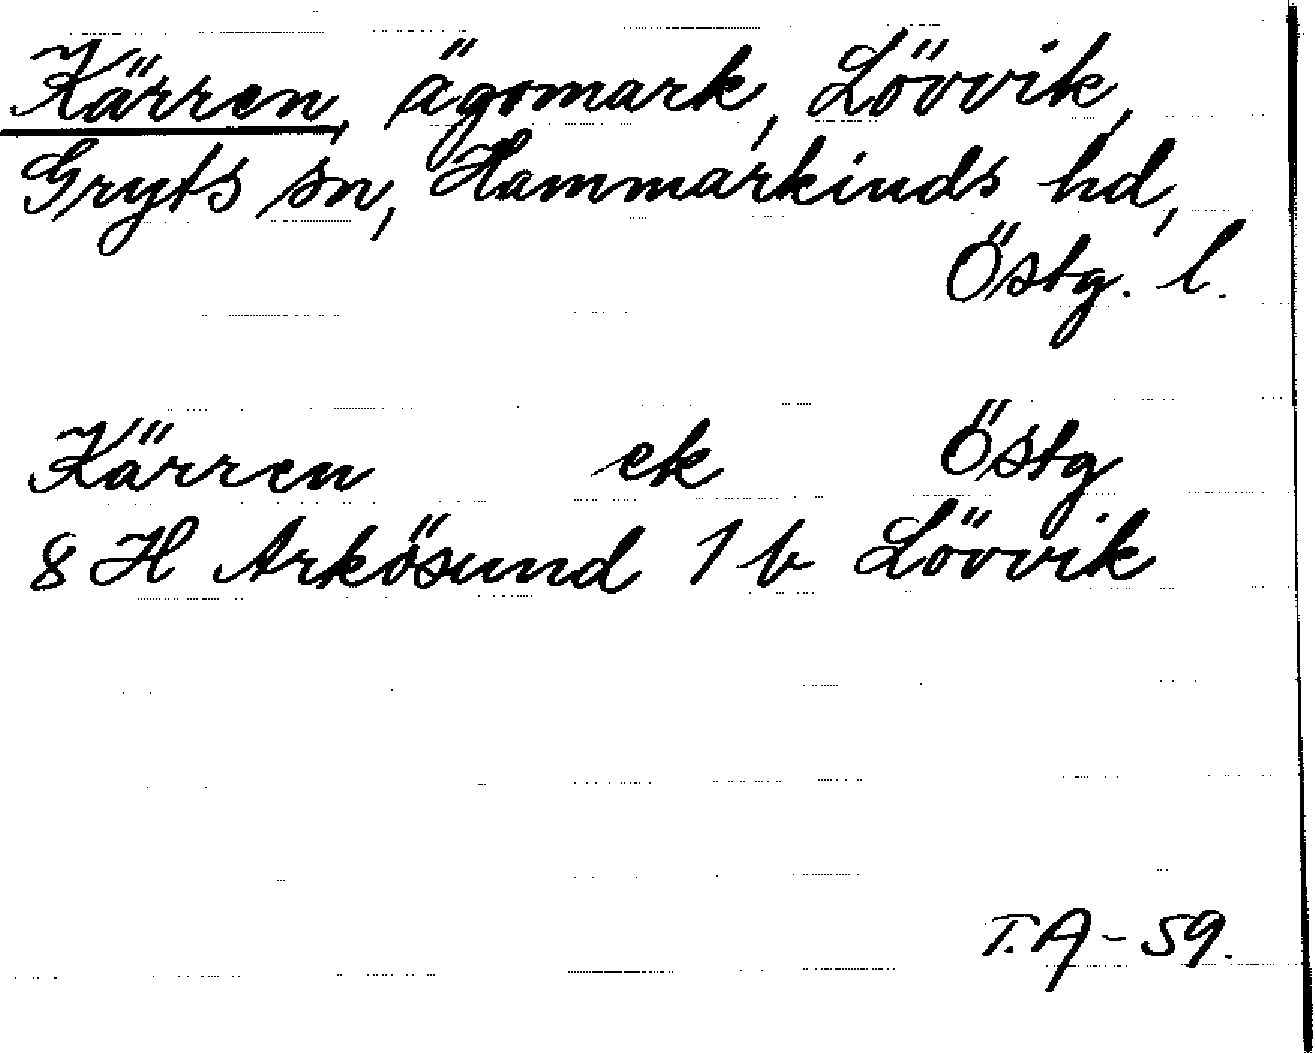 Kärren, ägomark, Lövvik,
Gryts sn, Hammarkinds hd,
Östg. l.
Kärren ek Östg
8 H Arkösund 1 b Lövvik
T.A - 59.